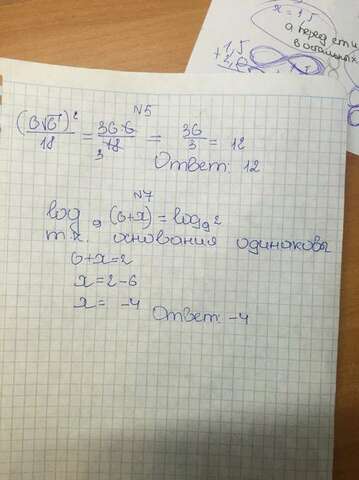 x = 1,5
а перед эти
в остальных
+1,5
№5
(6√6)²/18 = 36·6/18 3 = 36/3 = 12
Ответ: 12
№7
log₉ (6+x) = log₉2
т.к. основания одинаковы
6+x=2
x=2-6
x= -4
Ответ -4